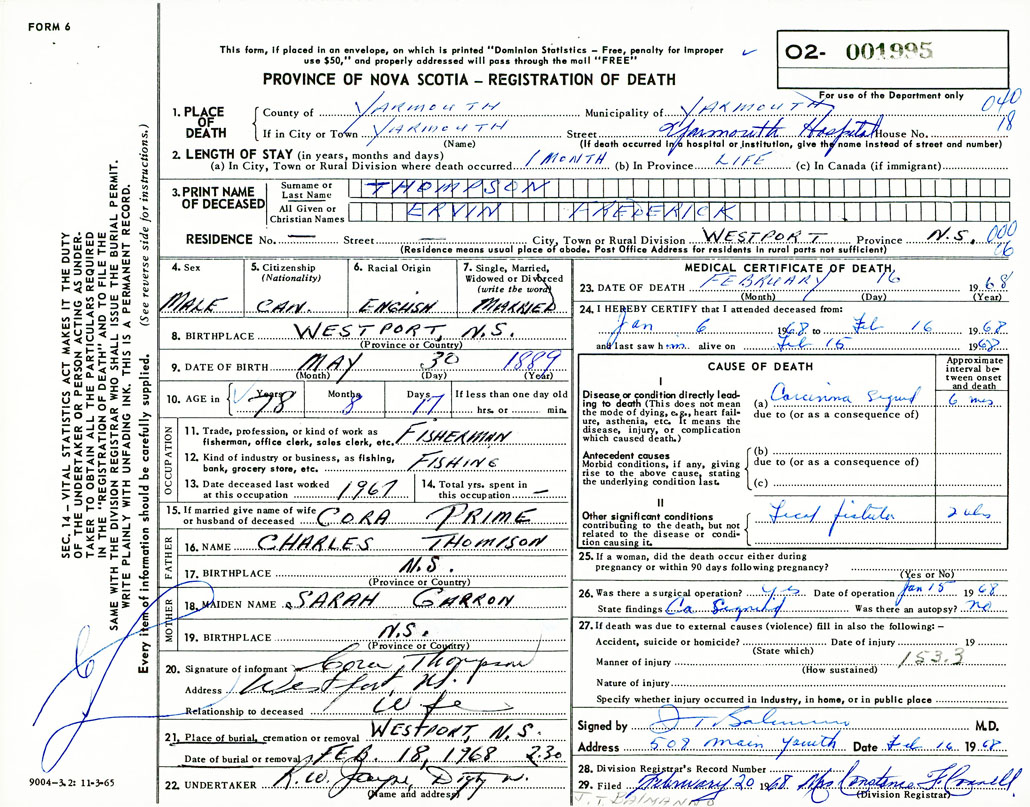 FORM 6
This form, if placed in an envelope, on which is printed "Dominion Statistics – Free, penalty for improper
use $50," and properly addressed will pass through the mail "FREE"
O2- 001995
PROVINCE OF NOVA SCOTIA – REGISTRATION OF DEATH
For use of the Department only
040
18
1. PLACE OF DEATH
County of YARMOUTH Municipality of YARMOUTH
If in City or Town YARMOUTH Street Yarmouth Hospital House No.
(Name) (If death occurred in a hospital or institution, give the name instead of street and number)
2. LENGTH OF STAY (in years, months and days)
(a) In City, Town or Rural Division where death occurred 1 MONTH (b) In Province LIFE (c) In Canada (if immigrant)
3. PRINT NAME OF DECEASED
Surname or Last Name THOMPSON
All Given or Christian Names ERVIN FREDERICK
RESIDENCE No. — Street — City, Town or Rural Division WESTPORT Province N.S. 000
(Residence means usual place of abode. Post Office Address for residents in rural parts not sufficient)
4. Sex MALE
5. Citizenship (Nationality) CAN.
6. Racial Origin ENGLISH
7. Single, Married, Widowed or Divorced (write the word) MARRIED
8. BIRTHPLACE WESTPORT, N.S.
(Province or Country)
9. DATE OF BIRTH MAY 30 1889
(Month) (Day) (Year)
10. AGE in Years 78 Months 8 Days 17 If less than one day old
hrs. or min.
OCCUPATION
11. Trade, profession, or kind of work as
fisherman, office clerk, sales clerk, etc. FISHERMAN
12. Kind of industry or business, as fishing,
bank, grocery store, etc. FISHING
13. Date deceased last worked
at this occupation 1967
14. Total yrs. spent in
this occupation —
15. If married give name of wife
or husband of deceased CORA PRIME
FATHER
16. NAME CHARLES THOMPSON
17. BIRTHPLACE N.S.
(Province or Country)
MOTHER
18. MAIDEN NAME SARAH GARRON
19. BIRTHPLACE N.S.
(Province or Country)
20. Signature of informant Cora Thompson
Address Westport, N.S.
Relationship to deceased Wife
21. Place of burial, cremation or removal WESTPORT N.S.
Date of burial or removal FEB. 18, 1968 2.30
22. UNDERTAKER R.W. Digby
(Name and address)
MEDICAL CERTIFICATE OF DEATH
23. DATE OF DEATH FEBRUARY 16 1968
(Month) (Day) (Year)
24. I HEREBY CERTIFY that I attended deceased from:
Jan 6 1968 to Feb 16 1968
and last saw him alive on Feb 15 1968
CAUSE OF DEATH
Approximate interval between onset and death
I
Disease or condition directly leading to death (This does not mean
the mode of dying, e.g., heart failure, asthenia, etc. It means the
disease, injury, or complication
which caused death.)
(a) Carcinoma Sigmoid 6 mos
due to (or as a consequence of)
Antecedent causes
Morbid conditions, if any, giving
rise to the above cause, stating
the underlying condition last.
(b)
due to (or as a consequence of)
(c)
II
Other significant conditions
contributing to the death, but not
related to the disease or condition causing it.
Fecal fistula 2 wks
25. If a woman, did the death occur either during
pregnancy or within 90 days following pregnancy?
(Yes or No)
26. Was there a surgical operation? yes Date of operation Jan 15 1968
State findings Ca Sigmoid Was there an autopsy? no
27. If death was due to external causes (violence) fill in also the following: –
Accident, suicide or homicide? Date of injury 19
(State which)
Manner of injury 153.3
(How sustained)
Nature of injury
Specify whether injury occurred in industry, in home, or in public place
Signed by J T Balmanno M.D.
Address 509 Main Ymouth Date Feb 16 1968
28. Division Registrar's Record Number
29. Filed February 20 1968 Mrs Constance F. Connell
(Division Registrar)
J. T. BALMANNO
9004-3.2: 11-3-65
SEC. 14 – VITAL STATISTICS ACT MAKES IT THE DUTY
OF THE UNDERTAKER OR PERSON ACTING AS UNDER-
TAKER TO OBTAIN ALL THE PARTICULARS REQUIRED
IN THE "REGISTRATION OF DEATH" AND TO FILE THE
SAME WITH THE DIVISION REGISTRAR WHO SHALL ISSUE THE BURIAL PERMIT.
WRITE PLAINLY WITH UNFADING INK. THIS IS A PERMANENT RECORD.
Every item of information should be carefully supplied. (See reverse side for instructions.)